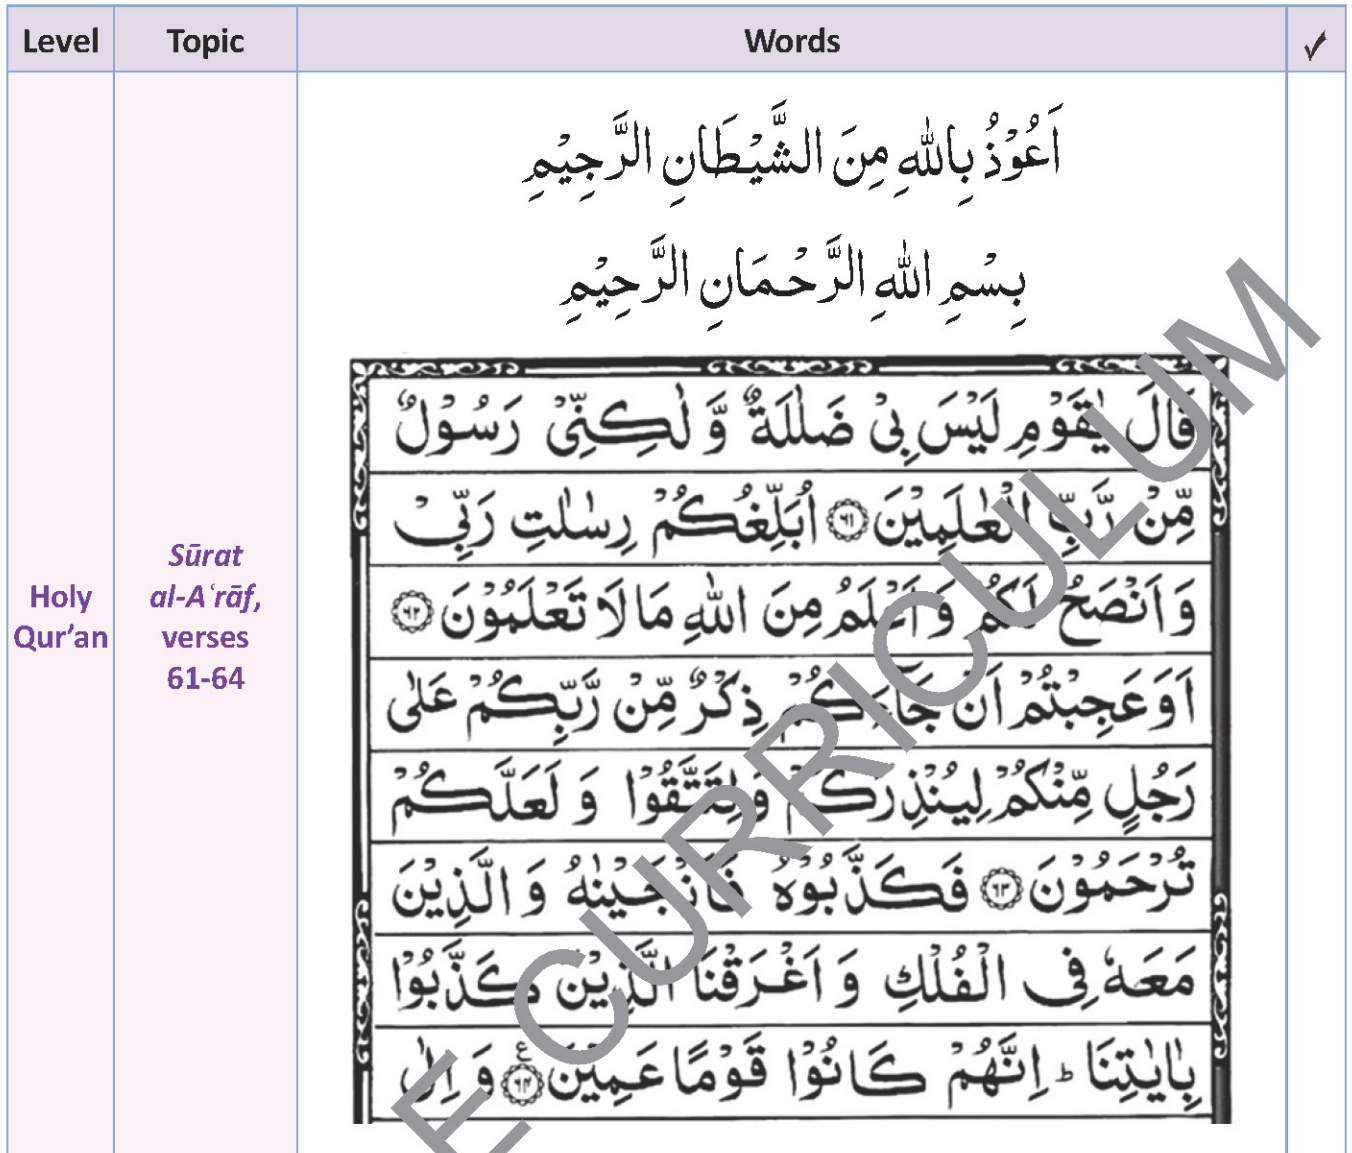 Level Topic Words ✓
Holy Qur’an
Sūrat al-Aʿrāf, verses 61-64
اَعُوْذُ بِاللّٰهِ مِنَ الشَّيْطَانِ الرَّجِيْمِ
بِسْمِ اللّٰهِ الرَّحْمَانِ الرَّحِيْمِ
قَالَ يٰقَوْمِ لَيْسَ بِیْ ضَلٰلَةٌ وَّ لٰكِنِّیْ رَسُوْلٌ
مِّنْ رَّبِّ الْعٰلَمِيْنَ ﴿٦١﴾ اُبَلِّغُكُمْ رِسٰلٰتِ رَبِّیْ
وَ اَنْصَحُ لَكُمْ وَ اَعْلَمُ مِنَ اللّٰهِ مَا لَا تَعْلَمُوْنَ ﴿٦٢﴾
اَوَعَجِبْتُمْ اَنْ جَآءَكُمْ ذِكْرٌ مِّنْ رَّبِّكُمْ عَلٰی
رَجُلٍ مِّنْكُمْ لِيُنْذِرَكُمْ وَ لِتَتَّقُوْا وَ لَعَلَّكُمْ
تُرْحَمُوْنَ ﴿٦٣﴾ فَكَذَّبُوْهُ فَاَنْجَيْنٰهُ وَ الَّذِيْنَ
مَعَهٗ فِی الْفُلْكِ وَ اَغْرَقْنَا الَّذِيْنَ كَذَّبُوْا
بِاٰيٰتِنَا ؕ اِنَّهُمْ كَانُوْا قَوْمًا عَمِيْنَ ﴿٦٤﴾ ع وَ اِلٰی
E CURRICULUM